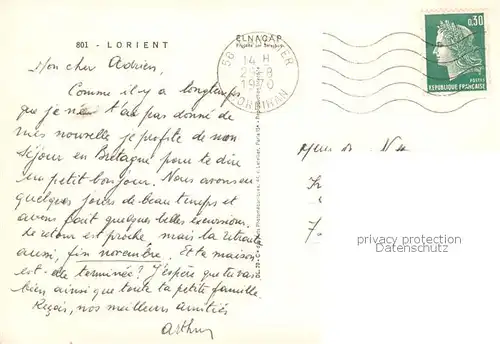 801 - LORIENT
ELNAGAR
56
14 H
1970
MORBIHAN
0,30
POSTES
RÉPUBLIQUE FRANÇAISE
Mon cher Adrien,
Comme il y a longtemps
que je n' t'ai pas donné de
mes nouvelle je profite de mon
séjour en Bretagne pour te dire
un petit bonjour. Nous avons eu
quelques jours de beau temps et
avons fait quelques belles excursions.
Le retour est proche, mais la retraite
aussi, fin novembre. Et ta maison
est-elle terminée? J'espère que tu vas
bien ainsi que toute ta petite famille.
Reçois, nos meilleurs amitiés
Arthur
privacy protection
Datenschutz